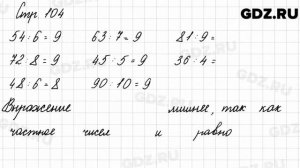 GDZ.RU
Стр. 104
54 : 6 = 9 63 : 7 = 9 81 : 9 =
72 : 8 = 9 45 : 5 = 9 36 : 4 =
48 : 6 = 8 90 : 10 = 9
Выражение лишнее, так как
частное чисел и равно
GDZ.RU